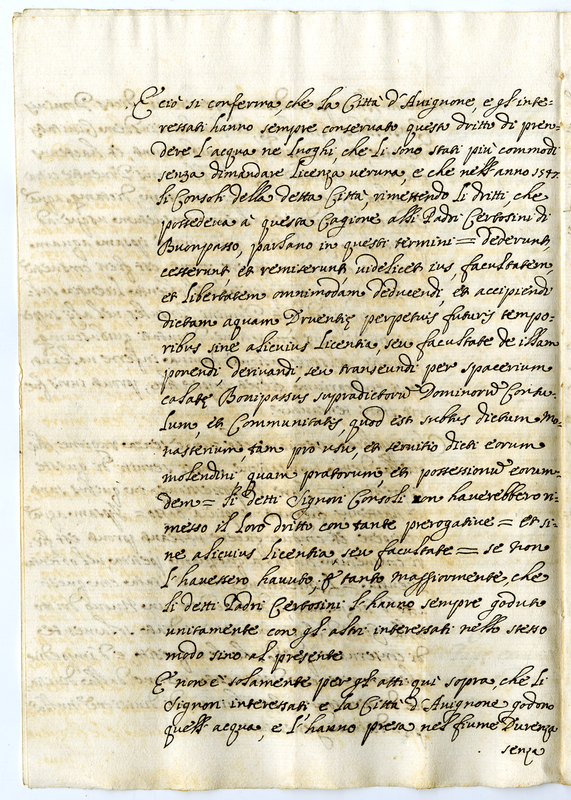 E ciò si conferma, che la Città d'Auignone, e gl'inte-
ressati hanno sempre conseruato questo dritto di pren-
dere l'acqua ne luoghi che li sono stati più commodi
senza dimandare licenza veruna, e che nell'anno 1577.
li Consoli della detta Città, rimettendo li dritti, che
possedeua à questa Cagione alli Padri Certosini di
Buonpasso, parlano in questi termini = dederunt,
cesserunt et remiserunt videlicet ius, facultatem,
et libertatem omnimodam deducendi, et accipiendi
dictam aquam Druentię perpetuis futuris tempo-
ribus sine alicuius licentia, seu facultate de illam
ponendi, deriuandi, seu transeundi per spacerium
calatę Bonipassus supradictorū Dominorū Consu-
lum, et Communitatis, quod est subtus dictum Mo-
nasterium tam pro usu, et seruitio dicti eorum
molendini, quam pratorum, et possessionū eorum-
dem = li detti Signori Consoli non hauerebbero ri-
messo il loro dritto con tante prerogatiue = et si-
ne alicuius licentia, seu facultate = se non
l'hauessero hauuto, e tanto maggiormente, che
li detti Padri Certosini l'hanno sempre goduto
unitamente con gl'altri interessati nello stesso
modo sino al presente
E non è solamente per gl'atti qui sopra, che li
Signori interessati e la Città d'Auignone godono
quell'acqua, e l'hanno presa nel fiume Durenza
senza